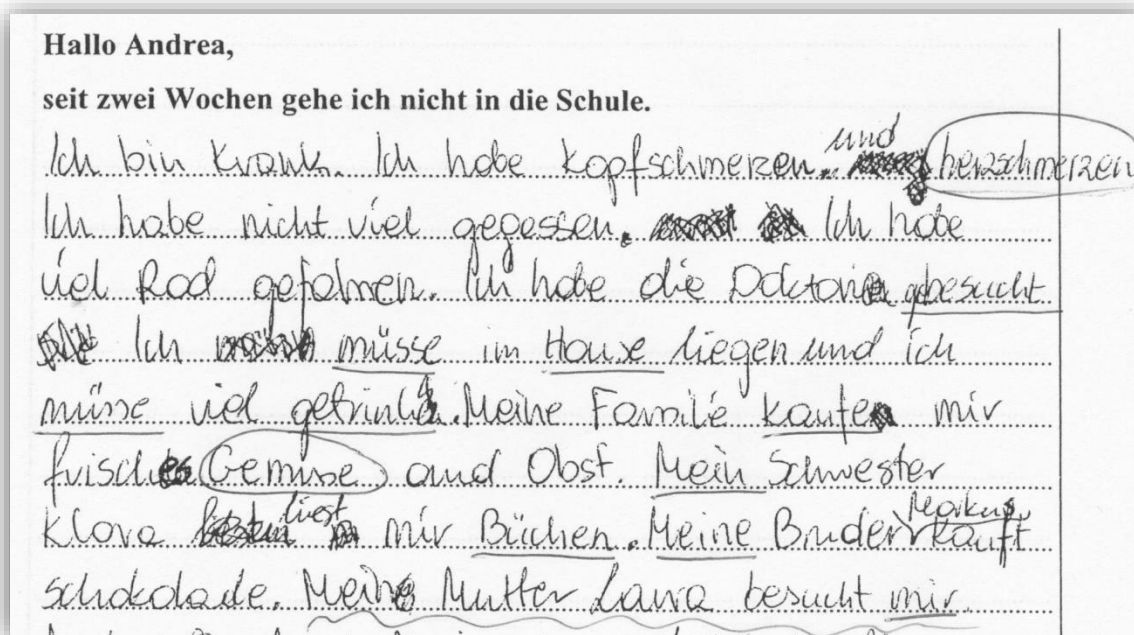 Hallo Andrea,
seit zwei Wochen gehe ich nicht in die Schule.
Ich bin krank. Ich habe Kopfschmerzen und herzschmerzen
Ich habe nicht viel gegessen. Ich habe
viel Rad gefahren. Ich habe die gebesucht
Ich müsse im Hause liegen und ich
müsse viel getrink. Meine Familie kaufte mir
frisches Gemüse und Obst. Mein Schwester
Klara liest mir Büchen. Meine Bruder Markus kauft
schokolade. Meine Mutter Laura besucht mir.